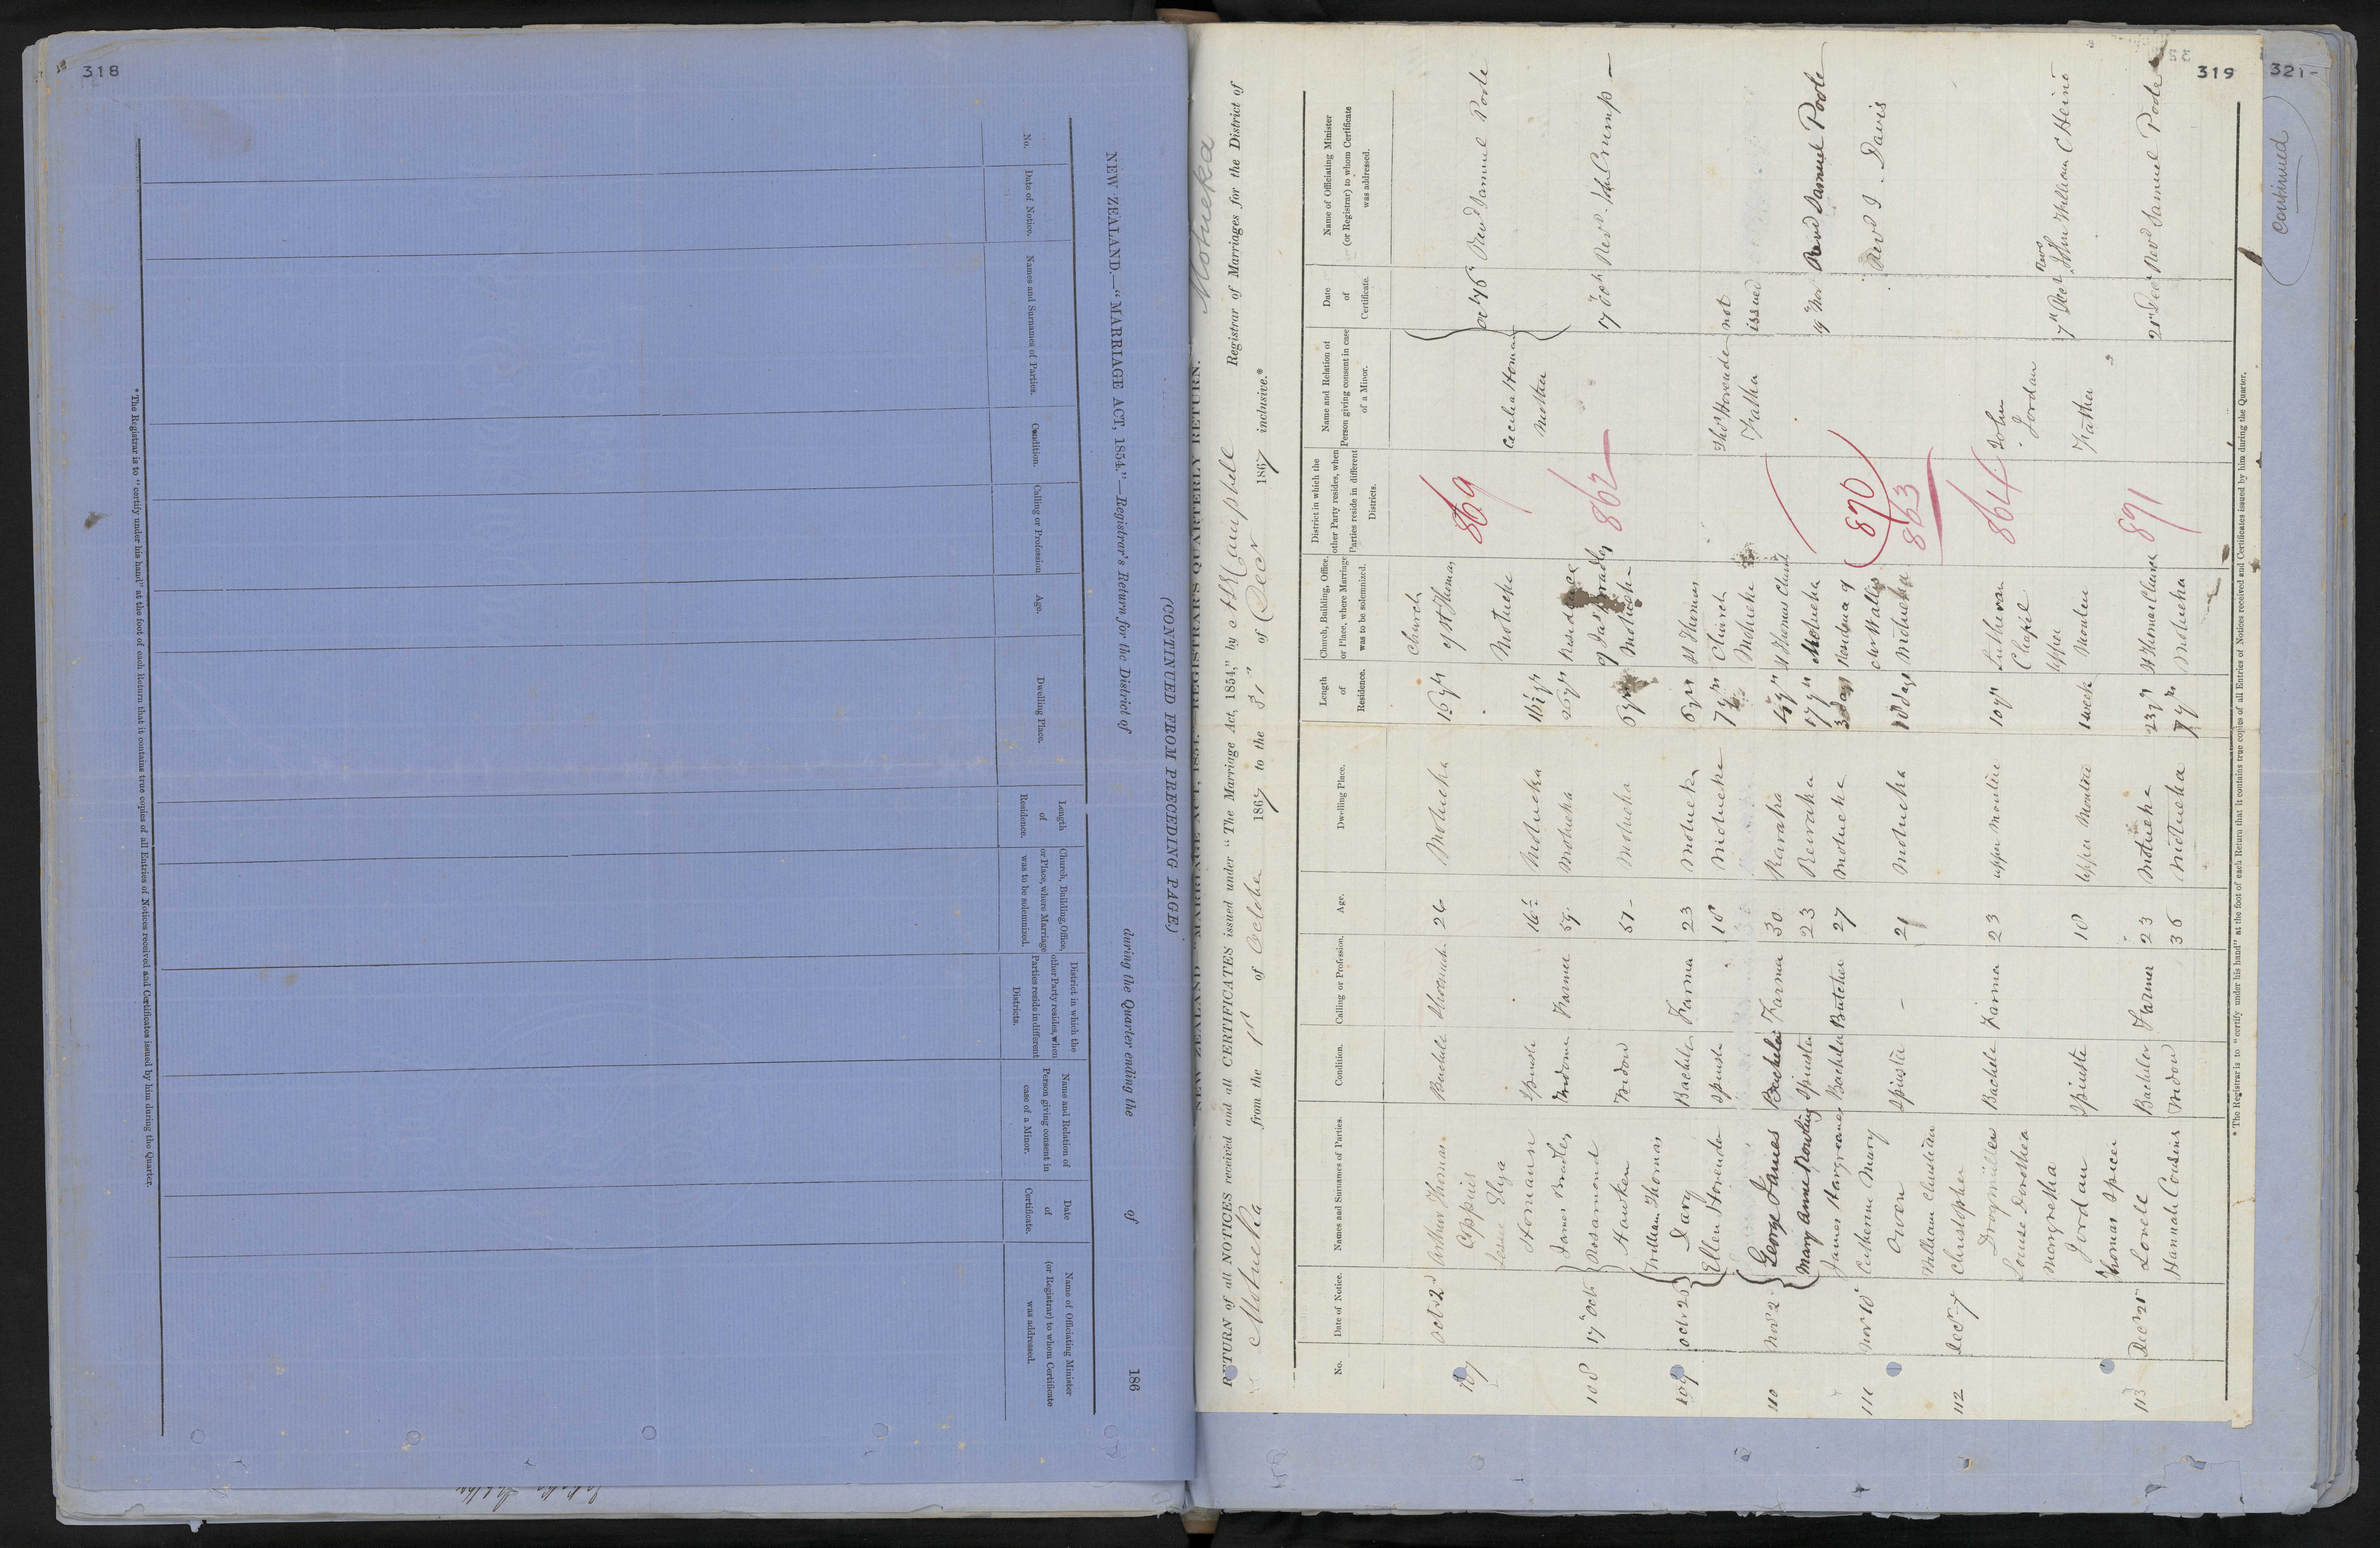 318
NEW ZEALAND.—"MARRIAGE ACT, 1854."—Registrar's Return for the District of during the Quarter ending the of 186
(CONTINUED FROM PRECEDING PAGE.)
No.
Date of Notice.
Names and Surnames of Parties.
Condition.
Calling or Profession
Age.
Dwelling Place.
Length of Residence.
Church, Building, Office, or Place, where Marriage was to be solemnized.
District in which the other Party resides, when Parties reside in different Districts.
Name and Relation of Person giving consent in case of a Minor.
Date of Certificate.
Name of Officiating Minister (or Registrar) to whom Certificate was addressed.
*The Registrar is to "certify under his hand" at the foot of each Return that it contains true copies of all Entries of Notices received and Certificates issued by him during the Quarter.
319
321
continued
Motueka
NEW ZEALAND "MARRIAGE ACT, 1854."—REGISTRAR'S QUARTERLY RETURN.
RETURN of all NOTICES received and all CERTIFICATES issued under "The Marriage Act, 1854," by Campbell Registrar of Marriages for the District of
Motueka from the 1st of October 1867 to the 31st of Decr 1867 inclusive.*
No.
Date of Notice.
Names and Surnames of Parties.
Condition.
Calling or Profession.
Age.
Dwelling Place.
Length of Residence.
Church, Building, Office, or Place, where Marriage was to be solemnized.
District in which the other Party resides, when Parties reside in different Districts.
Name and Relation of Person giving consent in case of a Minor.
Date of Certificate.
Name of Officiating Minister (or Registrar) to whom Certificate was addressed.
107 Octr 2 Arthur Thomas Bachelor 26 Motueka 16 yrs Church of St Thomas 869 Revd Samuel Poole
Homann Spinster 16½ Motueka 16½ yrs Motueka Cecilia Homann Mother
108 17th Octr James Bradley Farmer 59 Motueka Residence of Jas Bradley 862 17th Octr Revd Crump
Rosamond Hawken Widow 57 Motueka Motueka
109 Octr 25 William Thomas Dary Bachelor Farmer 23 Motueka 6 yrs St Thomas Thos Hovenden not
Ellen Hovenden Spinster 18 Motueka 7 yrs Church Motueka Father issued
110 Novr 2 George James Bachelor Farmer 30 St Thomas Church 870 19th Novr Revd Samuel Poole
Mary Anne Rowling Spinster 23 Riwaka 17 yrs Motueka
111 Novr 18 James Hargreaves Bachelor Butcher 27 Motueka 3 days Residence of 863 Revd Davis
Catherine Mary Owen Spinster — 21 Motueka 18 days Motueka
112 Decr 7 William Christian Christopher Drogmüller Bachelor Farmer 23 Upper Moutere 10 yrs Lutheran Chapel 864 John Jordan 7th Decr Revd John William C Heine
Louise Dorothea Margretha Jordan Spinster 18 Upper Moutere 1 week Upper Moutere Father
113 Decr 21st Thomas Spicer Lovell Bachelor Farmer 23 Motueka 23 yrs St Thomas Church 871 21st Decr Revd Samuel Poole
Hannah Cousins Widow 36 Motueka Motueka
*The Registrar is to "certify under his hand" at the foot of each Return that it contains true copies of all Entries of Notices received and Certificates issued by him during the Quarter.